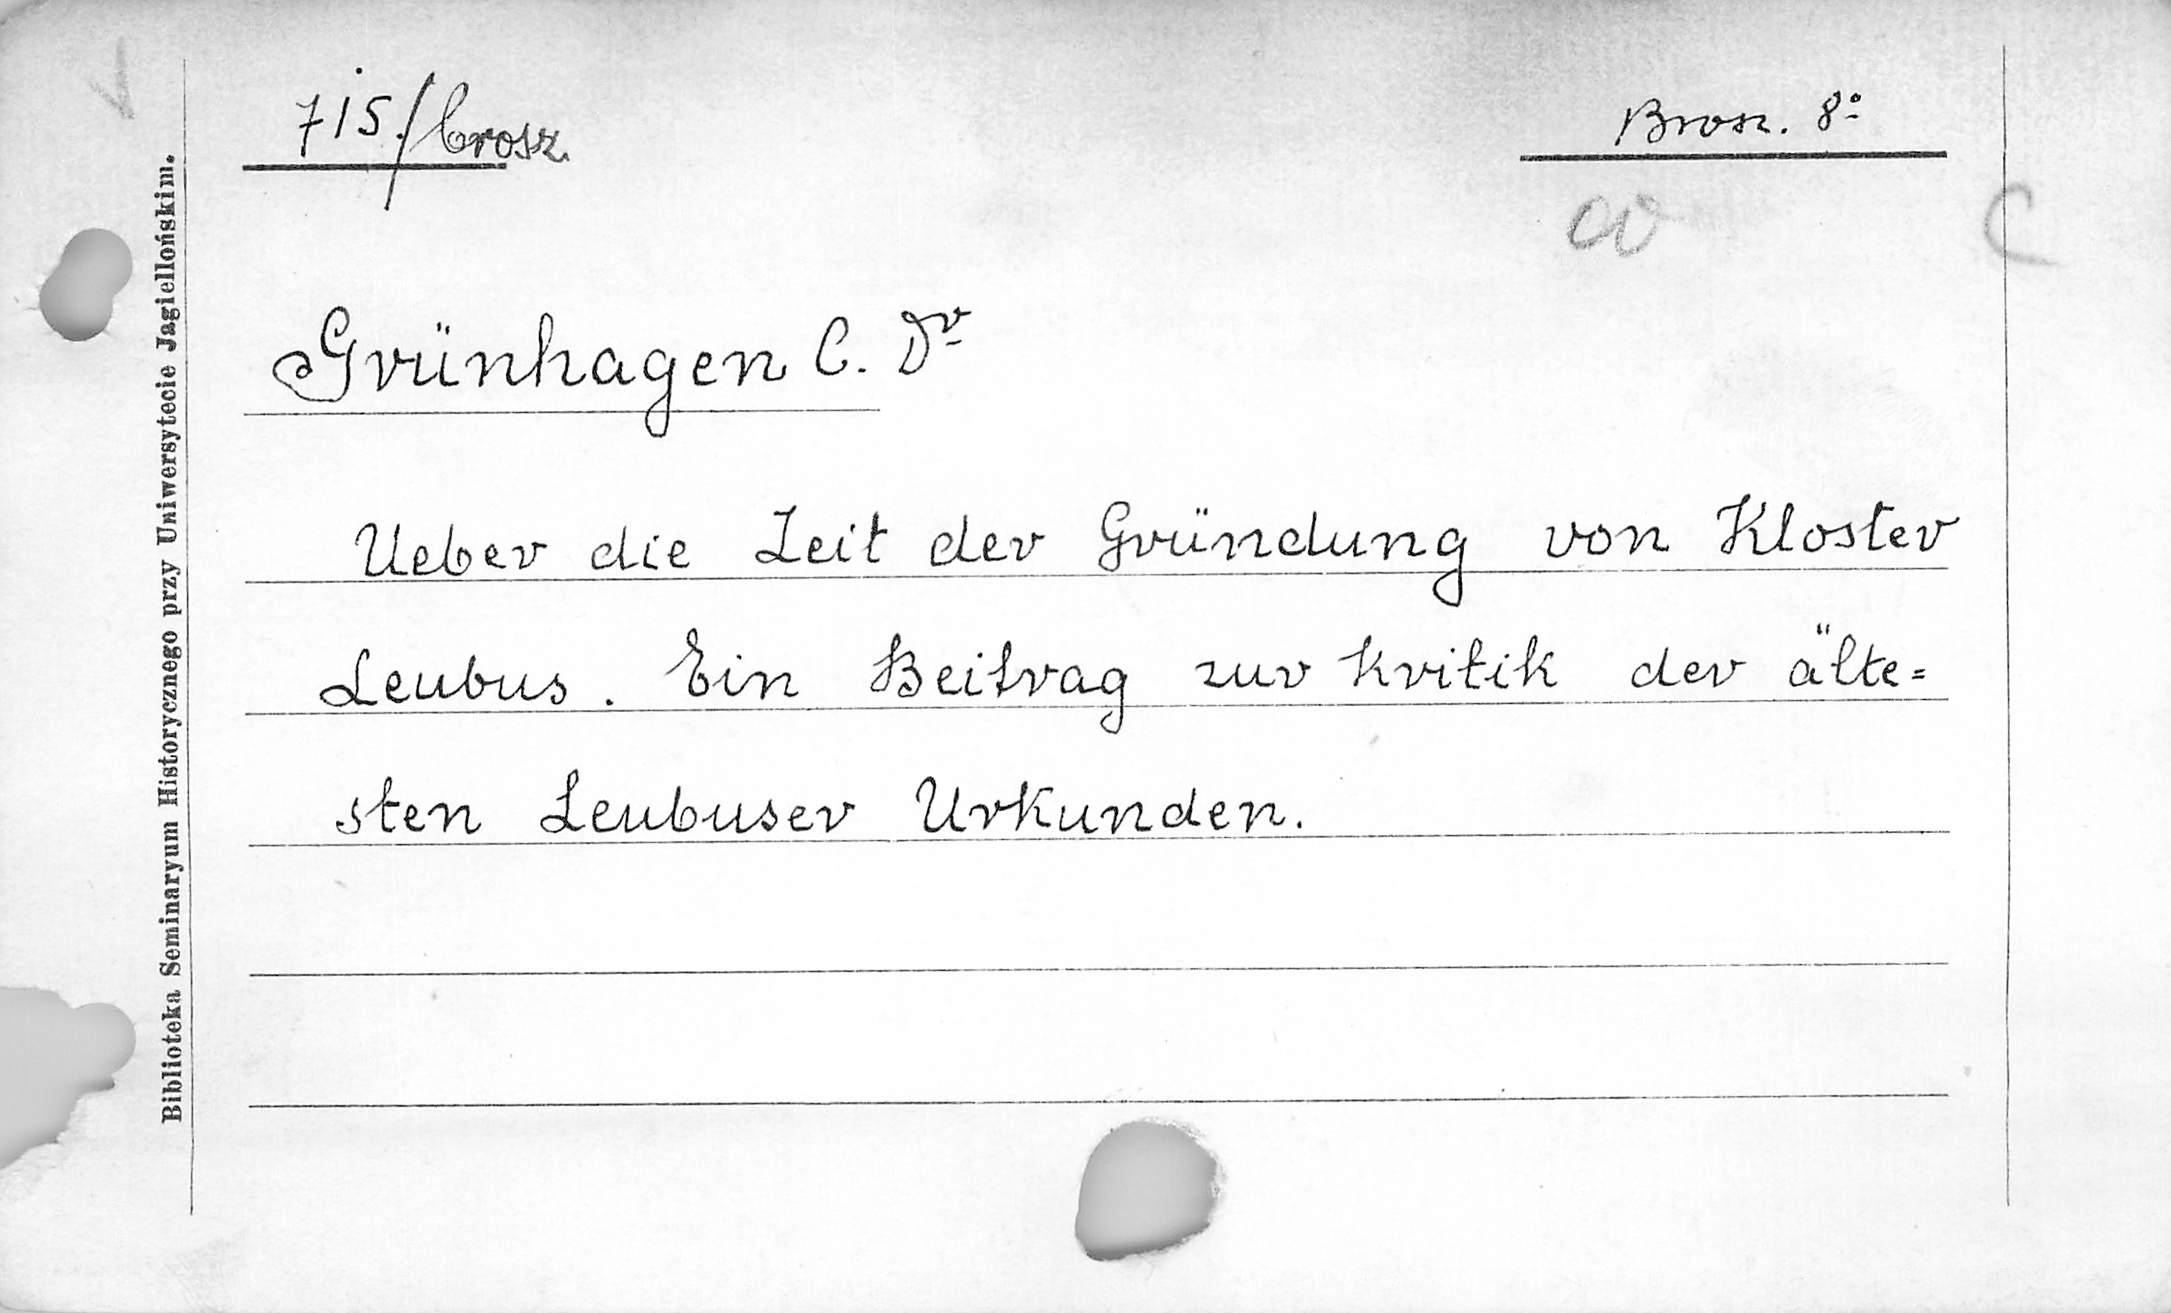 715./brosz.
Brosz. 8º
C
Grünhagen C. Dr
Ueber die Zeit der Gründung von Kloster
Leubus. Ein Beitrag zur Kritik der älte=
sten Leubuser Urkunden.
Biblioteka Seminaryum Historycznego przy Uniwersytecie Jagiellońskim.